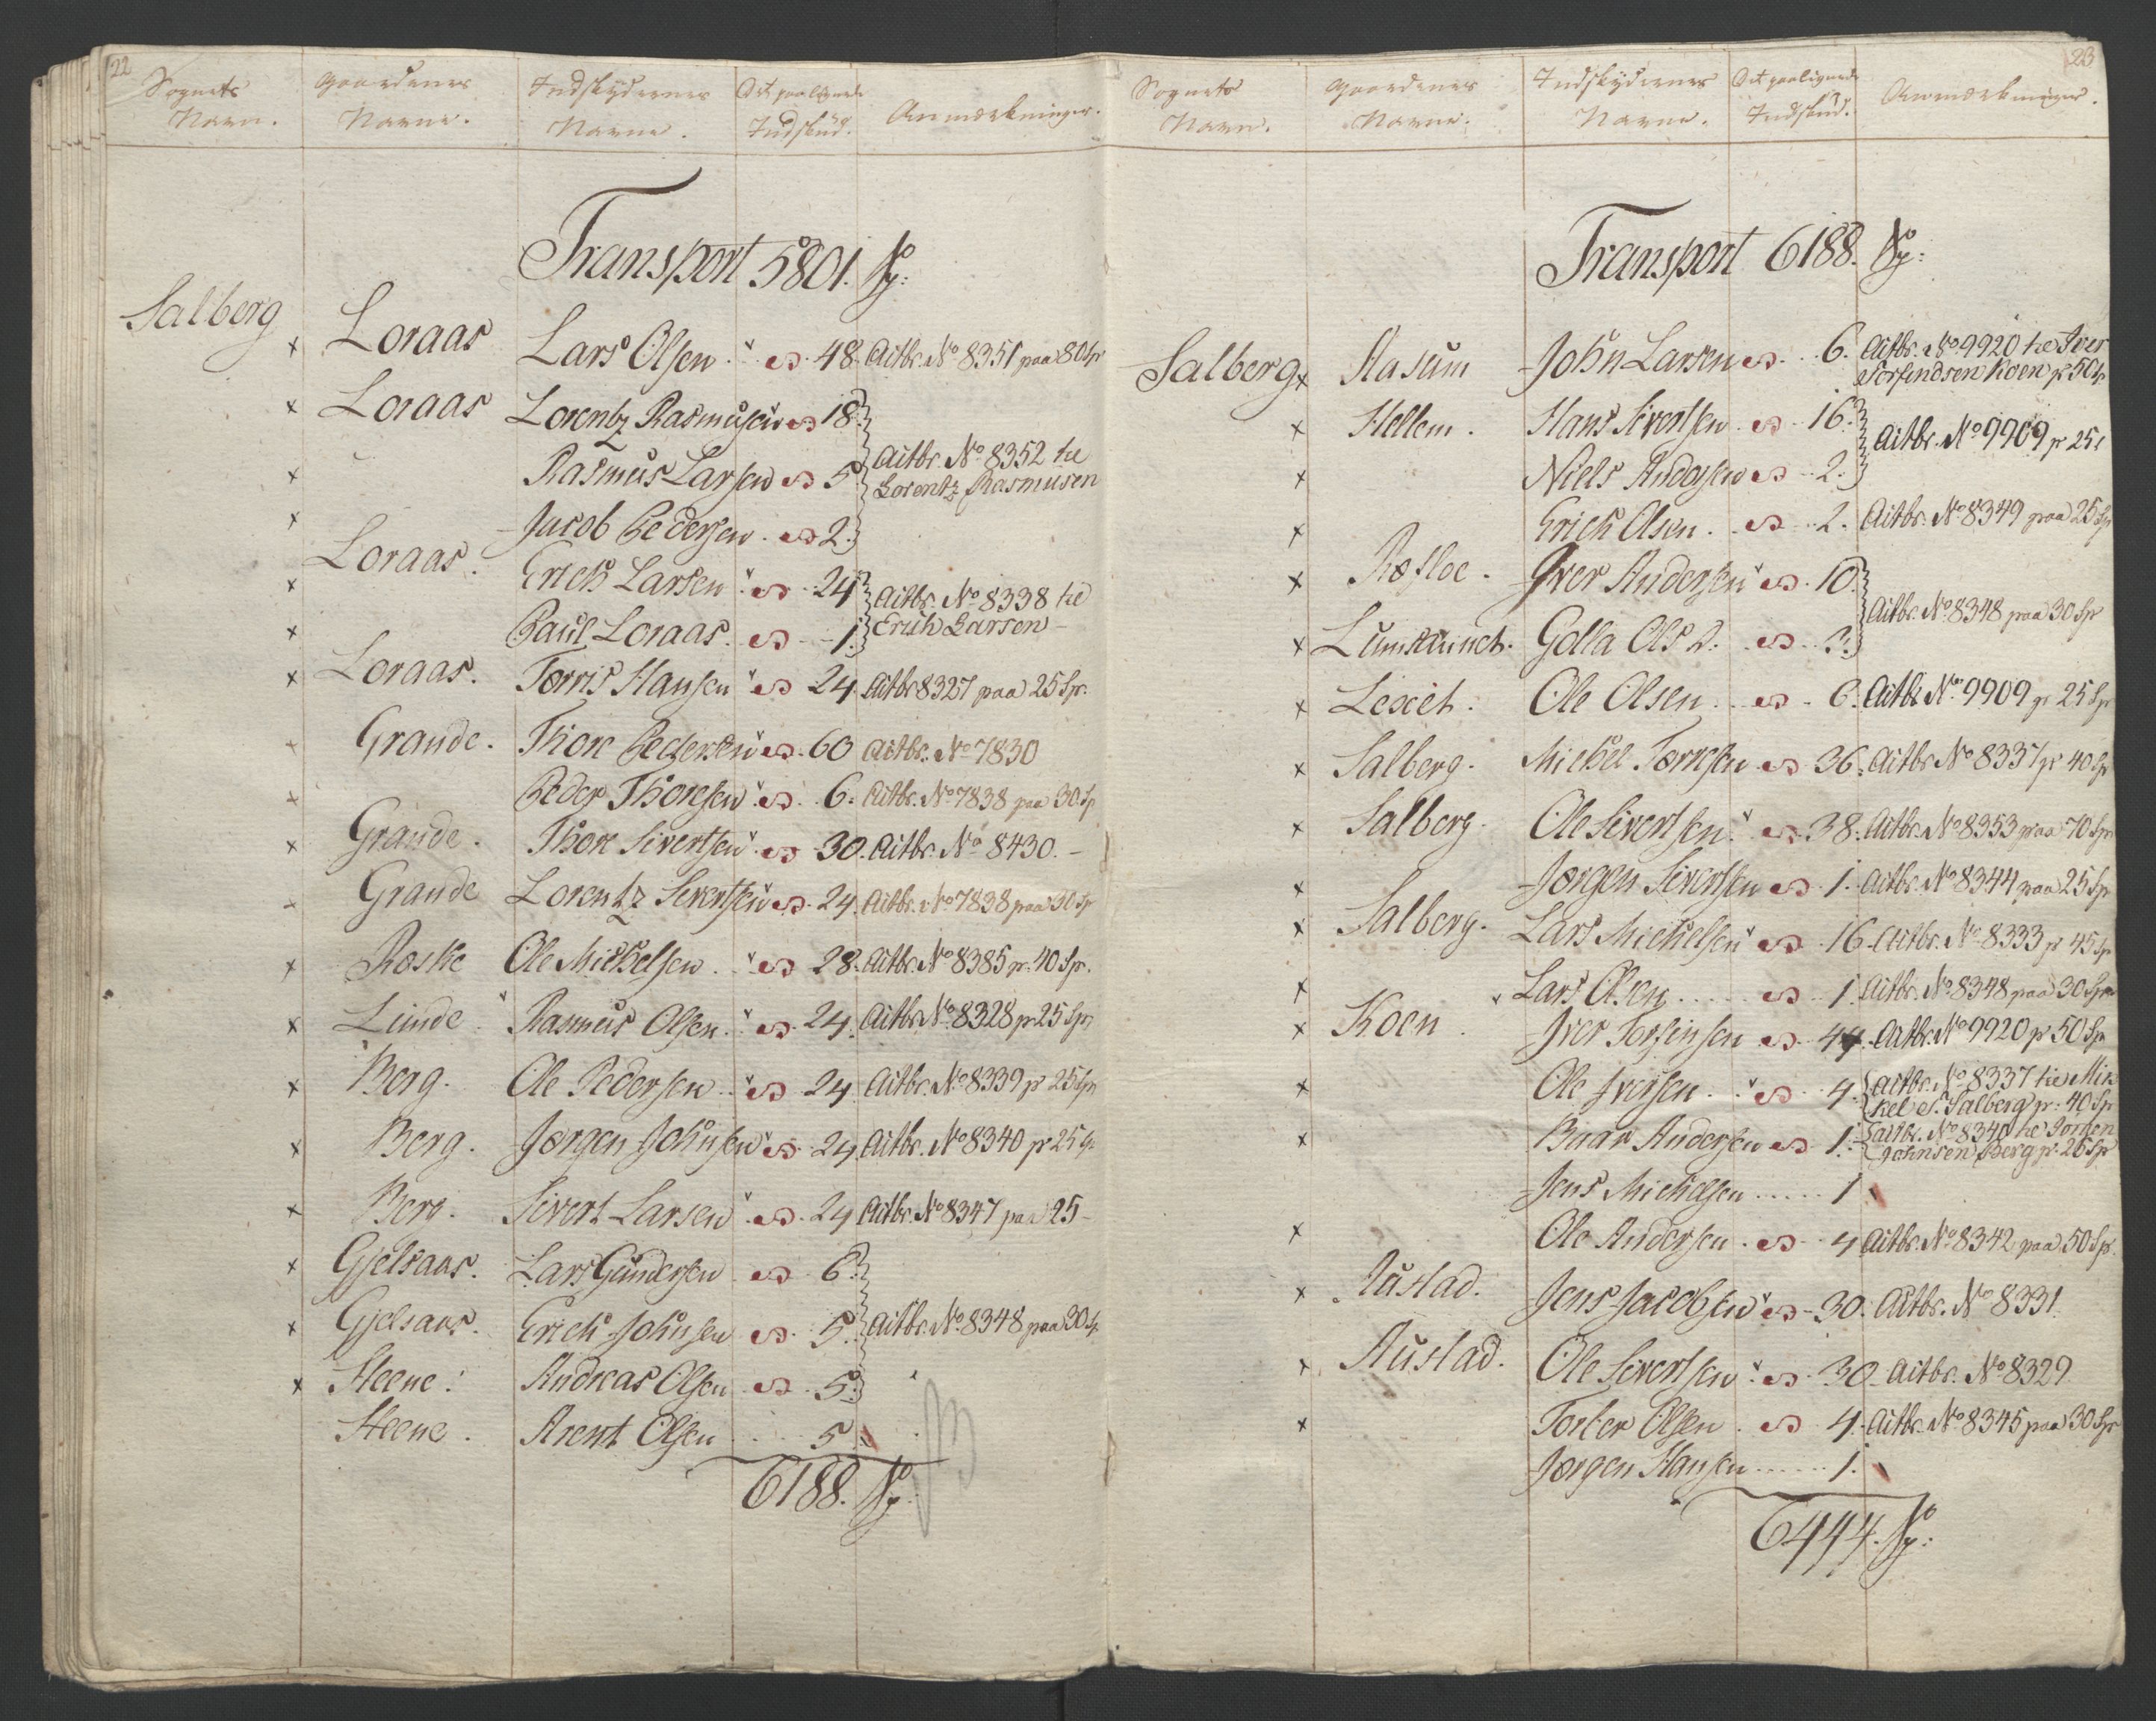 22
Sognets Navn. Gaardenes Navne. Indskydernes Navne. Det paalignede Indskud. Anmærkninger.
Transport 5801. Sp:
Salberg
x Loraas Lars Olsen 48. Aitbr. No 8351 paa 80 Sp
x Loraas Lorentz Rasmusen 18.
x Rasmus Larsen 5. Aitbr. No 8352 til
Lorentz Rasmusen
x Jacob Pedersen 2.
x Loraas. Erich Larsen 24 Aitbr. No 8338 til
x Paul Loraas. 1. Erich Larsen
x Loraas. Torris Hansen 24. Aitbr 8327 paa 25 Sp.
x Grande. Thore Pedersen 60 Aitbr. No 7830
x Peder Thoresen 6. Aitbr. No 7838 paa 30 Sp
x Grande. Thore Sivertsen 30. Aitbr. No 8430. -
x Grande Lorentz Sivertsen 24. Aitbr. No 7838 paa 30 Sp
x Roske Ole Michelsen 28. Aitbr. No 8385 pr. 40 Sp.
x Lunde Rasmus Olsen. 24. Aitbr. No 8328 pr 25 Sp
x Berg. Ole Pedersen 24 Aitbr. No 8339 pr 25 Sp
x Berg. Jørgen Johnsen 24. Aitbr. No 8340 pr 25 Sp
x Berg. Sivert Larsen 24 Aitbr. No 8347 paa 25 -
x Gjelsaas. Lars Gundersen 6.
x Gjelsaas. Erich Johnsen 5. Aitbr. No 8348 paa 30 Sp
x Steene. Andreas Olsen 5.
Steene. Arent Olsen 5.
6188. Sp
23
Sognets Navn. Gaardenes Navne. Indskydernes Navne. Det paalignede Indskud. Anmærkninger.
Transport 6188. Sp:
Salberg x Aasum John Larsen 6. Aitbr. No 9920 til Iver
Torfindsen Koen pr 50 Sp
x Hellem. Hans Sivertsen 16. Aitbr. No 9909 pr 25
x Niels Andersen 2.
x Erich Olsen. 2. Aitbr. No 8349 paa 25 Sp
x Rosloe. Iver Andersen 10.
x Golla Ols D. 3. Aitbr. No 8348 paa 30 Sp
x Ole Olsen. 6. Aitbr No 9909 pr 25 Sp
x Salberg. Michel Tornesen 36. Aitbr No 8337 pr 40 Sp
x Salberg. Ole Sivertsen. 38. Aitbr. No 8353 paa 70 Sp
x Jørgen Sivertsen 1. Aitbr. No 8344 paa 25 Sp
x Salberg. Lars Michelsen 16. Aitbr. No 8333 pr 45 Sp
x Lars Olsen 1. Aitbr. No 8348 paa 30 Sp
x Koen. Iver Torfinsen 44. Aitbr. No 9920 pr 50 Sp
x Ole Iversen. 4. Aitbr. No 8337 til Mik
kel S. Salberg pr. 40 Sp
x Baar Andersen 1. Aitbr. No 8340 til Jørgen
Johnsen Berg pr. 25 Sp
Jens Michelsen 1
x Ole Andersen 4 Aitbr. No 8342 paa 50 Sp.
x Austad. Jens Jacobsen 30. Aitbr. No 8331.
x Austad. Ole Sivertsen 30 Aitbr. No 8329
x Torber Olsen 4. Aitbr. No 8345 paa 30 Sp
Jørgen Hansen 1.
6444. Sp: